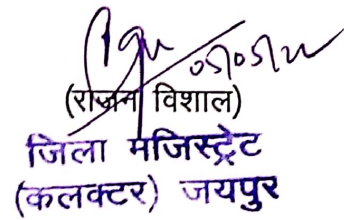 05/05/22
(राजन विशाल)
जिला मजिस्ट्रेट
(कलक्टर) जयपुर